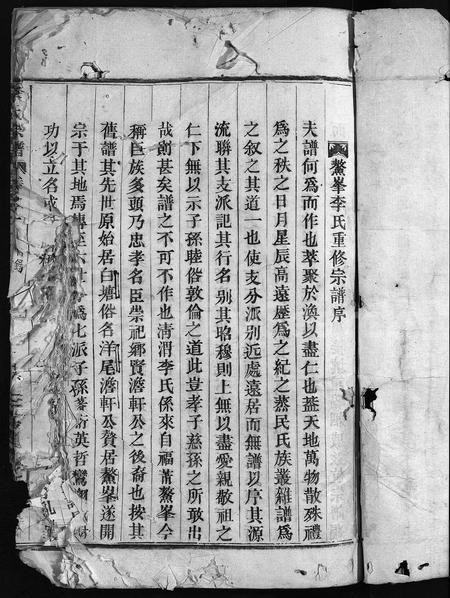 鰲峯李氏重修宗譜序
夫譜何爲而作也萃聚於渙以盡仁也蓋天地萬物散殊禮
爲之秩之日月星辰高遠歷爲之紀之蒸民氏族叢雜譜爲
之叙之其道一也使支分派别近處遠居而無譜以序其源
流聯其支派記其行名别其昭穆則上無以盡愛親敬祖之
仁下無以示子孫睦俗敦倫之道此豈孝子慈孫之所敢出
哉創甚矣譜之不可不作也清渭李氏係來自福莆鰲峯今
稱巨族多頭乃忠孝名臣崇祀鄉賢澹軒公之後裔也按其
舊譜其先世原始居白塘俗名洋尾澹軒公贅居鰲峯遂開
宗于其地焉傳至六世分爲七派子孫蕃衍英哲
功以立名成